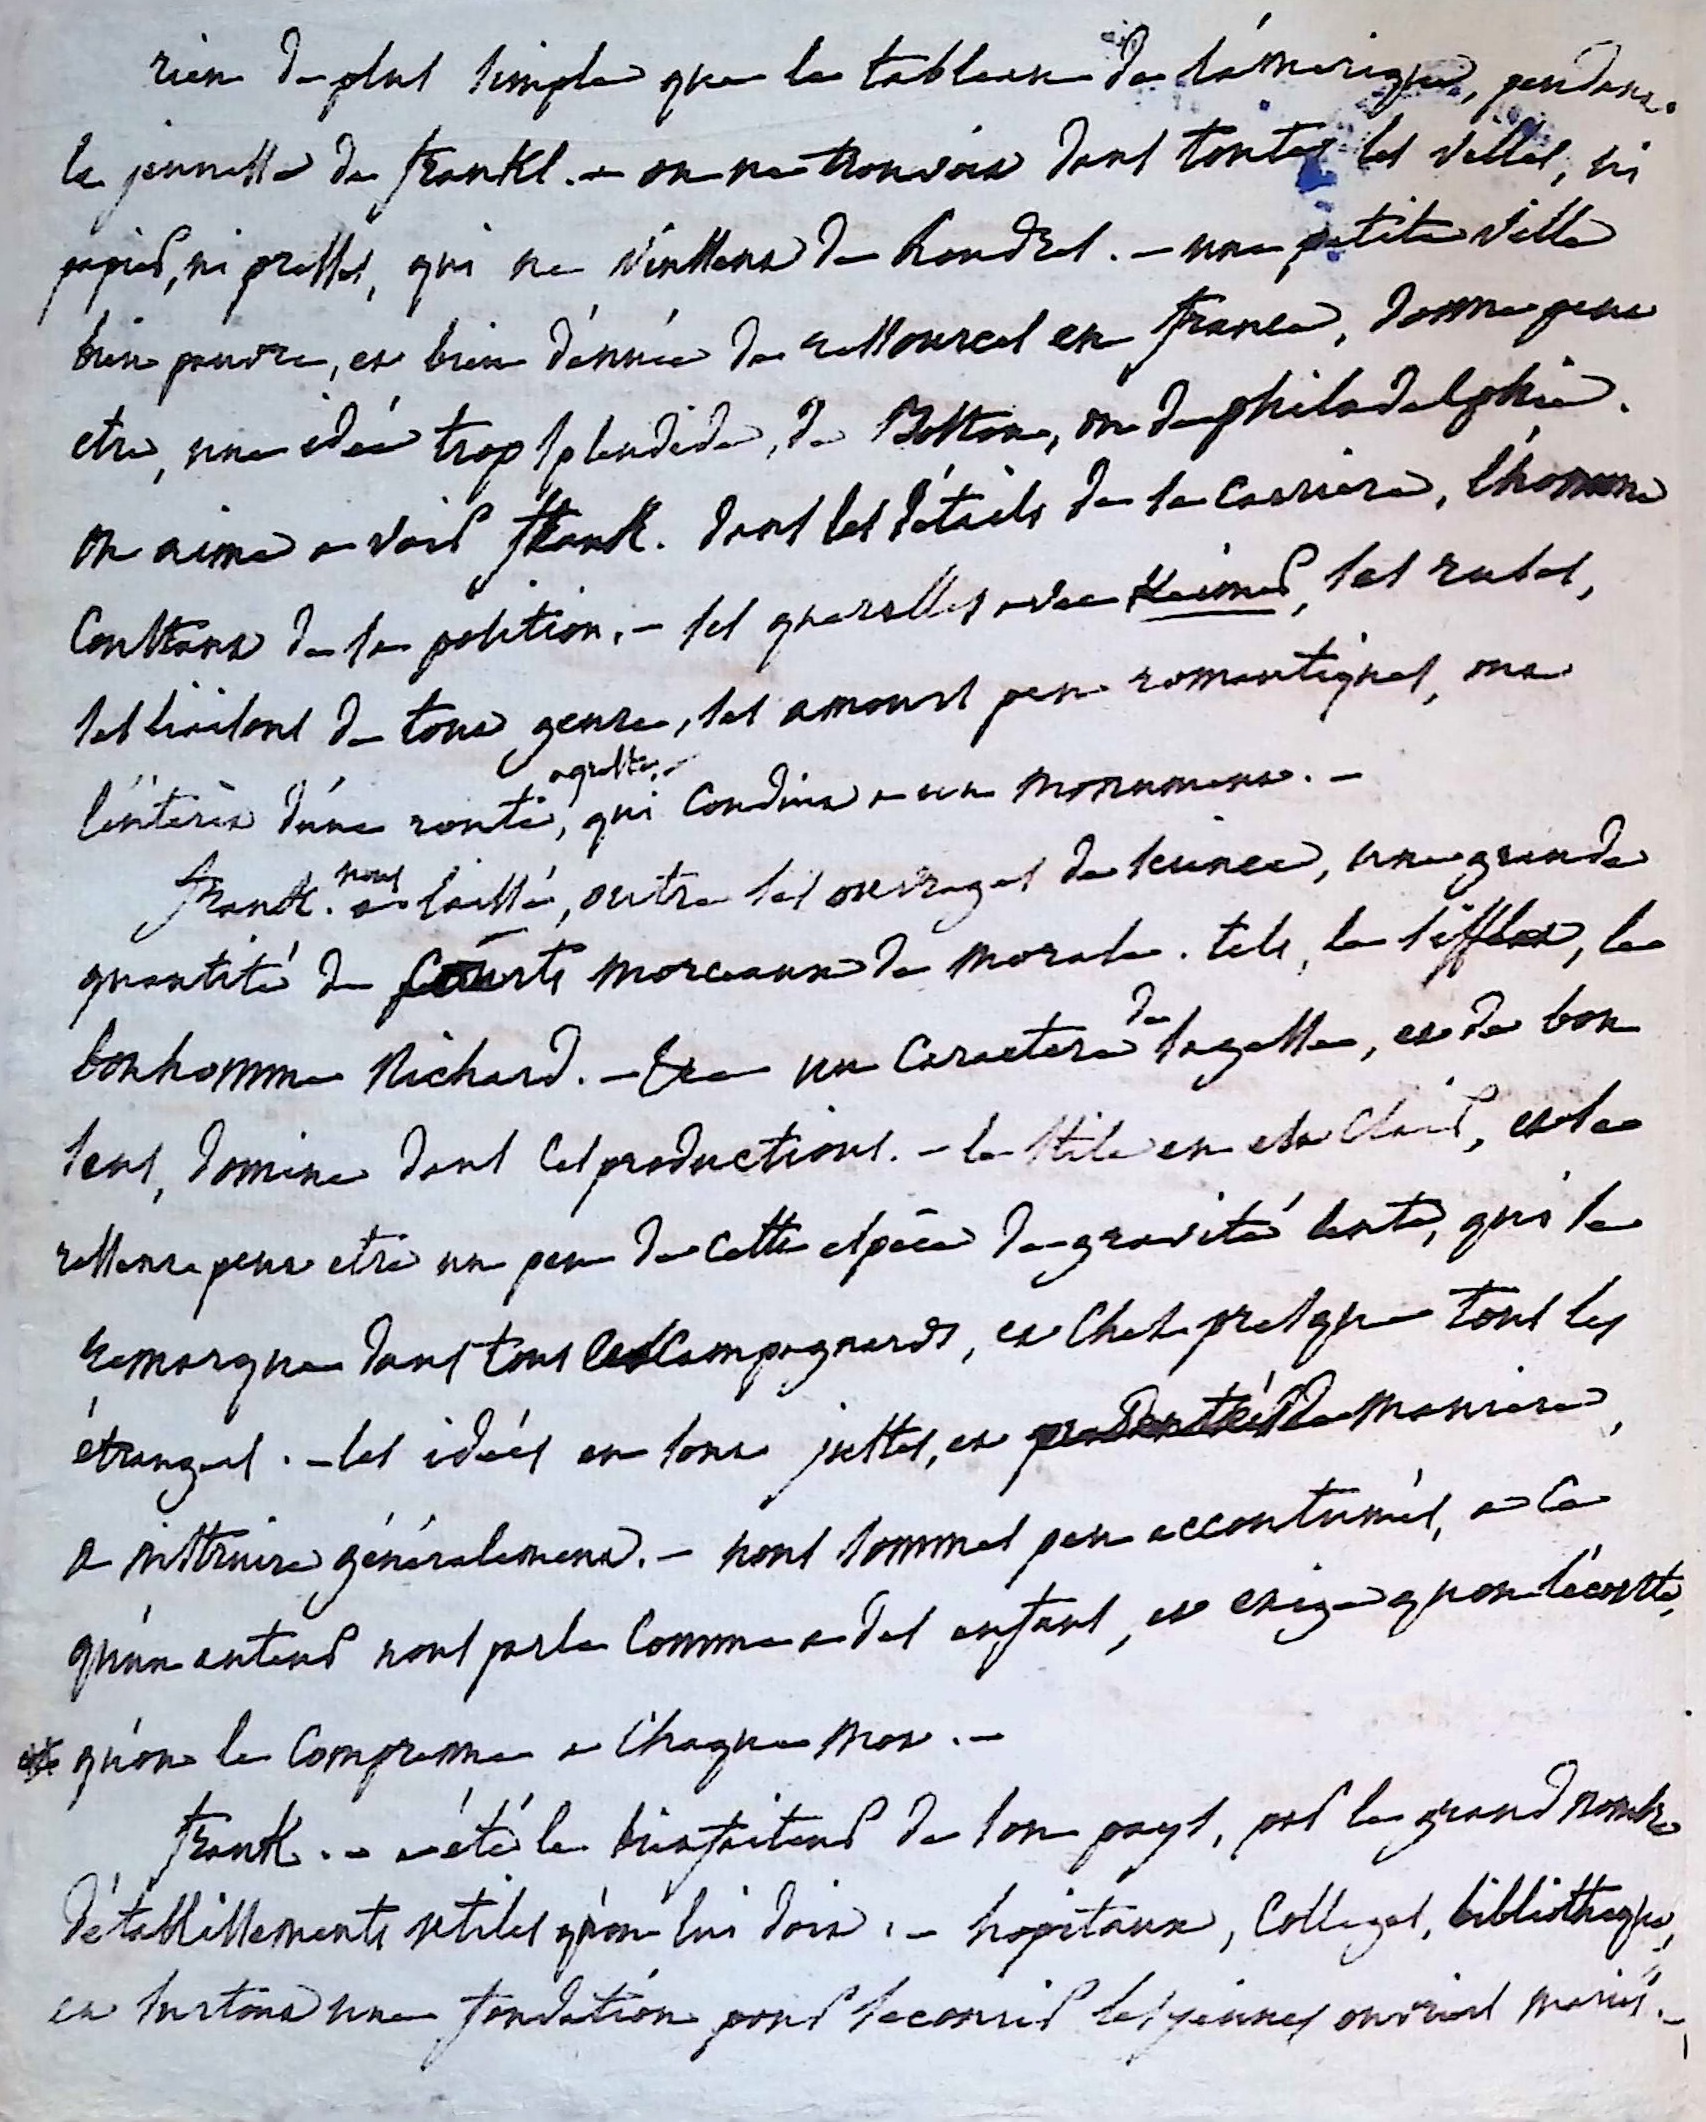 rien de plus simple que le tableau de l'amérique, pendant
la jeunesse de frankl. – on ne trouvoit dans toutes les villes, ni
papier, ni presses, qui ne vinssent de Londres. – une petite ville
bien pauvre, et bien dénuée de ressources en france, donne peut
etre, une idée trop splendide, de Boston, ou de philadelphie.
on aime a voir frank. dans les détails de sa carriere, l'homme
constant de sa position. – ses querelles avec Keimer, ses ruses,
ses liaisons de tout genre, ses amours peu romantiques, ont
l'intérèt d'une route agreste, qui conduit a un monument. –
frank. nous a laissé, outre ses ouvrages de science, une grande
quantité de courts morceaux de morale. tels, le sifflet, le
bonhomme Richard. – &c. un caractere de sagesse, et de bon
sens, domine dans ces productions. – le stile en est clair, et se
ressent peut etre un peu de cette espèce de gravité lente, qui se
remarque dans tous les campagnards, et chez presque tous les
étrangers. – les idées en sont justes, et de maniere,
a instruire généralement. – nous sommes peu accoutumés, a ce
qu'un auteur nous parle comme a des enfans, et exige qu'on l'écoute,
qu'on le comprenne a chaque mot. –
frank. – a été le bienfaiteur de son pays, par le grand nombre
d'établissements utiles qu'on lui doit. – hopitaux, colleges, bibliotheque,
et surtout une fondation pour secourir les jeunes ouvriers mariés. –